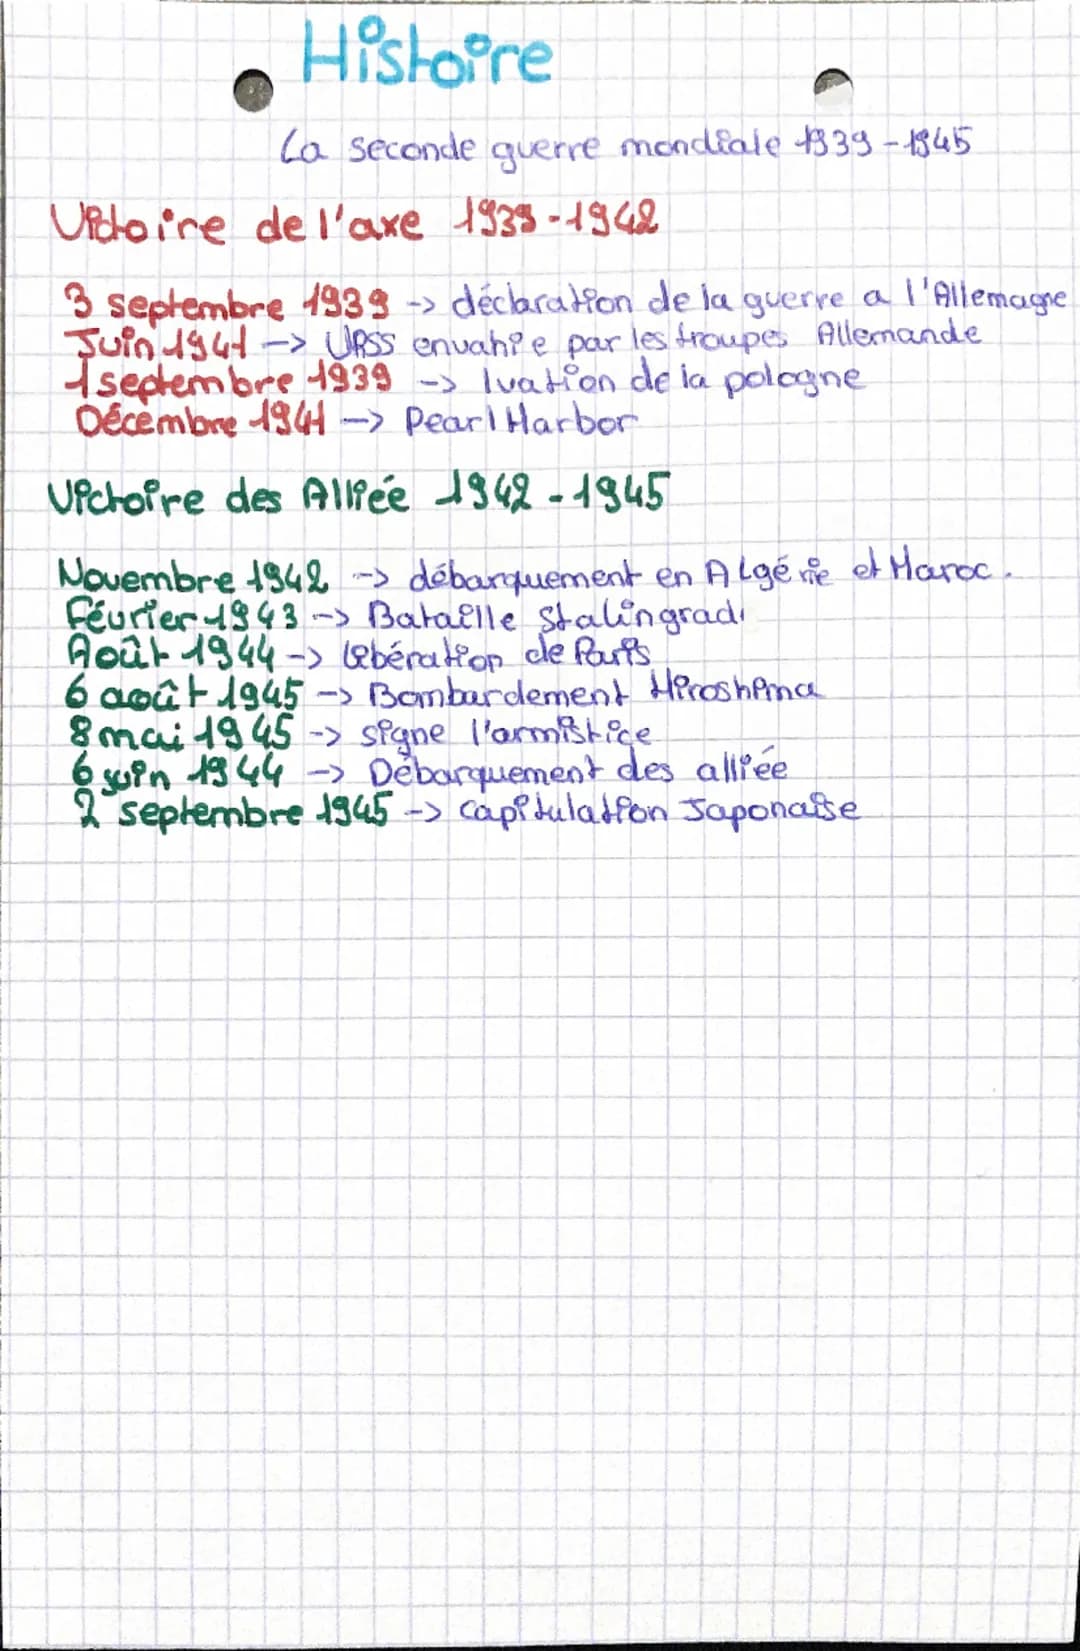 Histoire
La seconde guerre mondiale 1939-1945
Victoire de l'axe 1939-1942
3 septembre 1939 -> déclaration de la guerre a l'Allemagne
Juin 1941 -> URSS envahie par les troupes Allemande
1 septembre 1939 -> Ivation de la pologne
Décembre 1941 -> Pearl Harbor
Victoire des Alliée 1942-1945
Novembre 1942 -> débarquement en Algérie et Maroc.
Février 1943 -> Bataille Stalingrad
Août 1944 -> libération de Paris
6 août 1945 -> Bombardement Hiroshima
8 mai 1945 -> signe l'armistice
6 juin 1944 -> Débarquement des alliée
2 septembre 1945 -> capitulation Japonaise